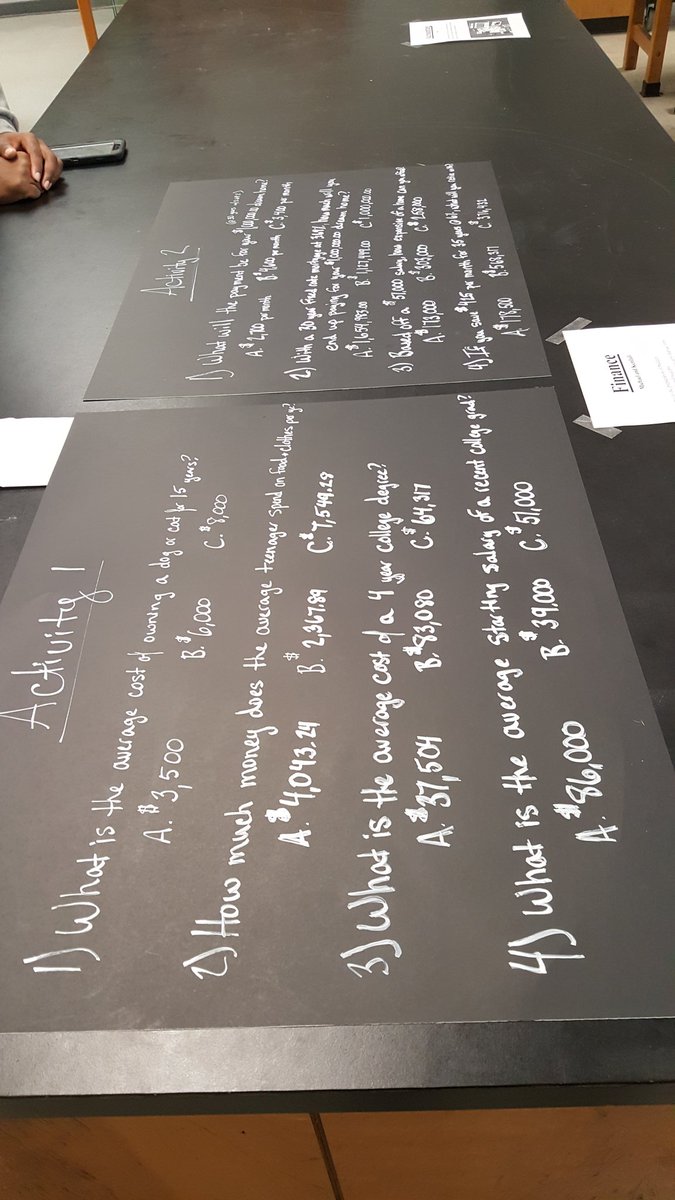 Activity 1
1) What is the average cost of owning a dog or cat for 15 years?
A. $3,500 B. $6,000 C. $8,000
2) How much money does the average teenager spend on food + clothes per yr?
A. $4,043.24 B. $2,367.89 C. $7,549.28
3) What is the average cost of a 4 year college degree?
A. $37,504 B. $83,080 C. $64,317
4) What is the average starting salary of a recent college grad?
A. $86,000 B. $39,000 C. $51,000
Activity 2
1) What will the payment be for your dream home?
A. $2,700 per month B. $4,600 per month C. $3,400 per month
2) With a 30 year fixed rate mortgage at how much will you
end up paying for your $1,000,000.00 dream home?
A. $1,654,983.00 B. $1,127,499.00 C. $1,000,000.00
3) Based off a $51,000 salary, how expensive of a home can you
A. $173,000 B. $303,000 C. $268,000
4) If you save $425 per month for 35 years
A. $178,500 B. $568,371 C. $376,432
Finance